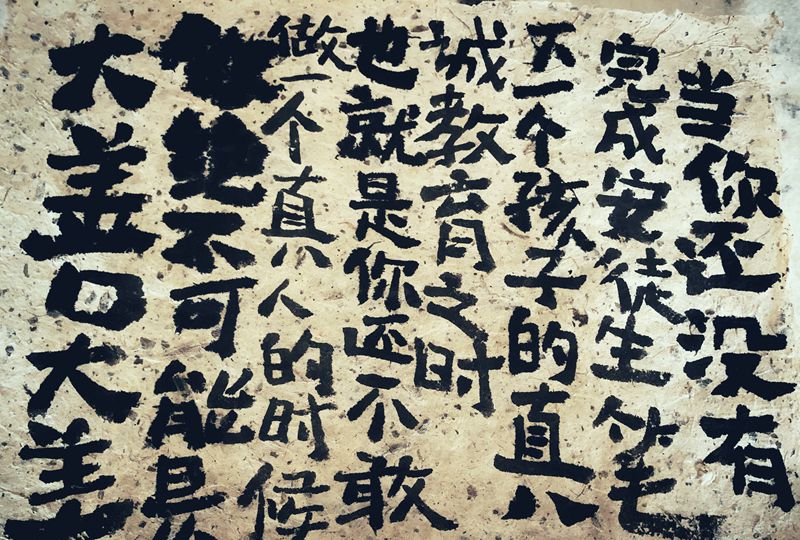 当你还没有
完成安徒生笔
下一个孩子的真
诚教育之时
也就是你还不敢
做一个真人的时候
绝不可能
大善大美